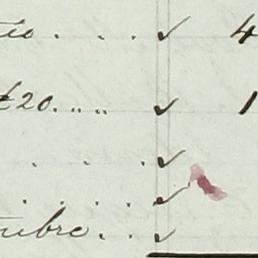 io.... ✓ 4
t20.... ✓ 1
. . . ✓
. . . . . ✓
tubre.. ✓